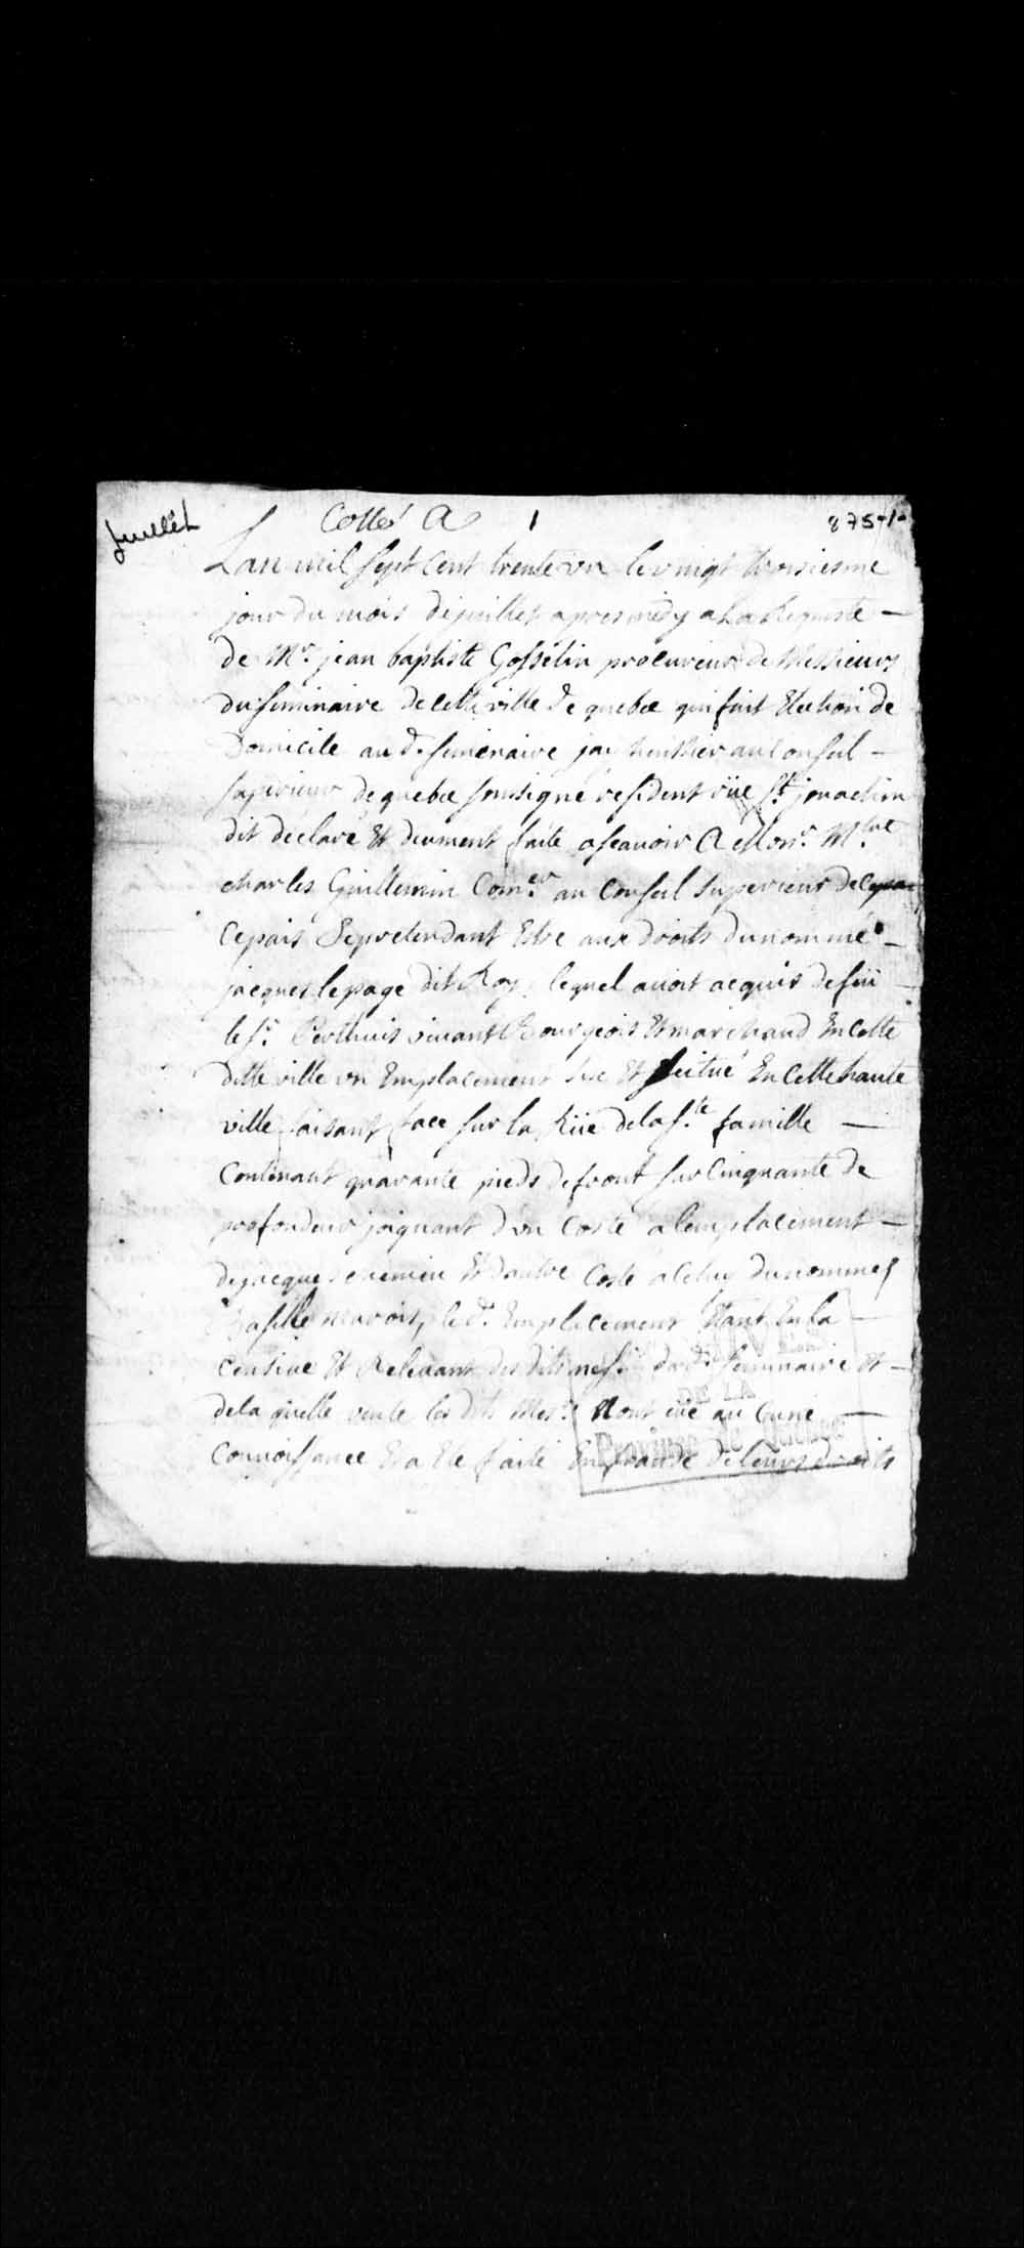 Juillet
Cotté A 1 875-1-
Lan mil sept cent trente un le vingt troisiesme
jour du mois de juillet apres midy a la Requeste —
de Mr. jean baptiste Gosselin procureur de Messieurs
du seminaire de cette ville de quebec qui fait Election de
Domicile au d. seminaire jay huissier au Conseil —
superieur de quebec soussigné resident rüe St. joachin
dit declaré et deument faite asçavoir A Monr. Mtre
charles Guillemin Comer. au Conseil superieur de
ce pais se pretendant Estre aux droits du nommé —
jacques lepage dit Roy, lequel avoit acquis de füi
le sr. Perthuis vivant Bourgeois et marchand En cette
ditte ville un Emplacement sis Et scitué En cette haute
ville faisant face sur la Rüe de la ste. famille —
Contenant quarante pieds de front sur Cinquante de
profondeur joignant d'un Costé a lemplacement —
de jacques Et dautre Costé a Celuy du nommé
le d. Emplacement Etant En la —
Censive Et Relevant des dits messrs. du d. seminaire et —
de la quelle vente les dits Messrs. Nont eüe aucune —
Connoissance Et a Ete faite En fraude de leurs droits
Province de Québec